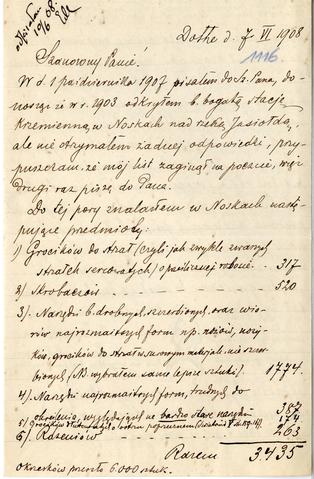 Dothe d. 7 VI 1908
1116
Szanowny Panie!
W d. 1 października 1907 pisałem do Sz. Pana, do-
nosząc że w r. 1903 odkryłem b. bogatą stację
Krzemienną w Noskach nad rzeką Jasiołdą,
ale nie otrzymałem żadnej odpowiedzi, przy-
puszczam, że mój list zaginął na poczcie, więc
drugi raz piszę do Pana.
Do tej pory znalazłem w Noskach nastę-
pujące przedmioty:
1) Grocików do strzał (czyli jak zwykle zwanych
strzałek sercowatych) o piękniejszej robocie 317
2) Skrobaczy 520
3) Narzędzi b. drobnych, szczerbionych, oraz wió-
rów najrozmaitszych form np. nożów, noży-
ków, grocików do strzał w surowym materjale nie szczer-
bionych (NB. wybrałem same lepsze sztuki) 1774.
4) Narzędzi najrozmaitszych form, trudnych do
określenia, wyglądających na bardzo stare narzędzia 387
5) Grocików o ostrzu poprzecznem 174
6) Rdzeniów 263
Razem 3.435
Okrzesków przeszło 6000 sztuk.